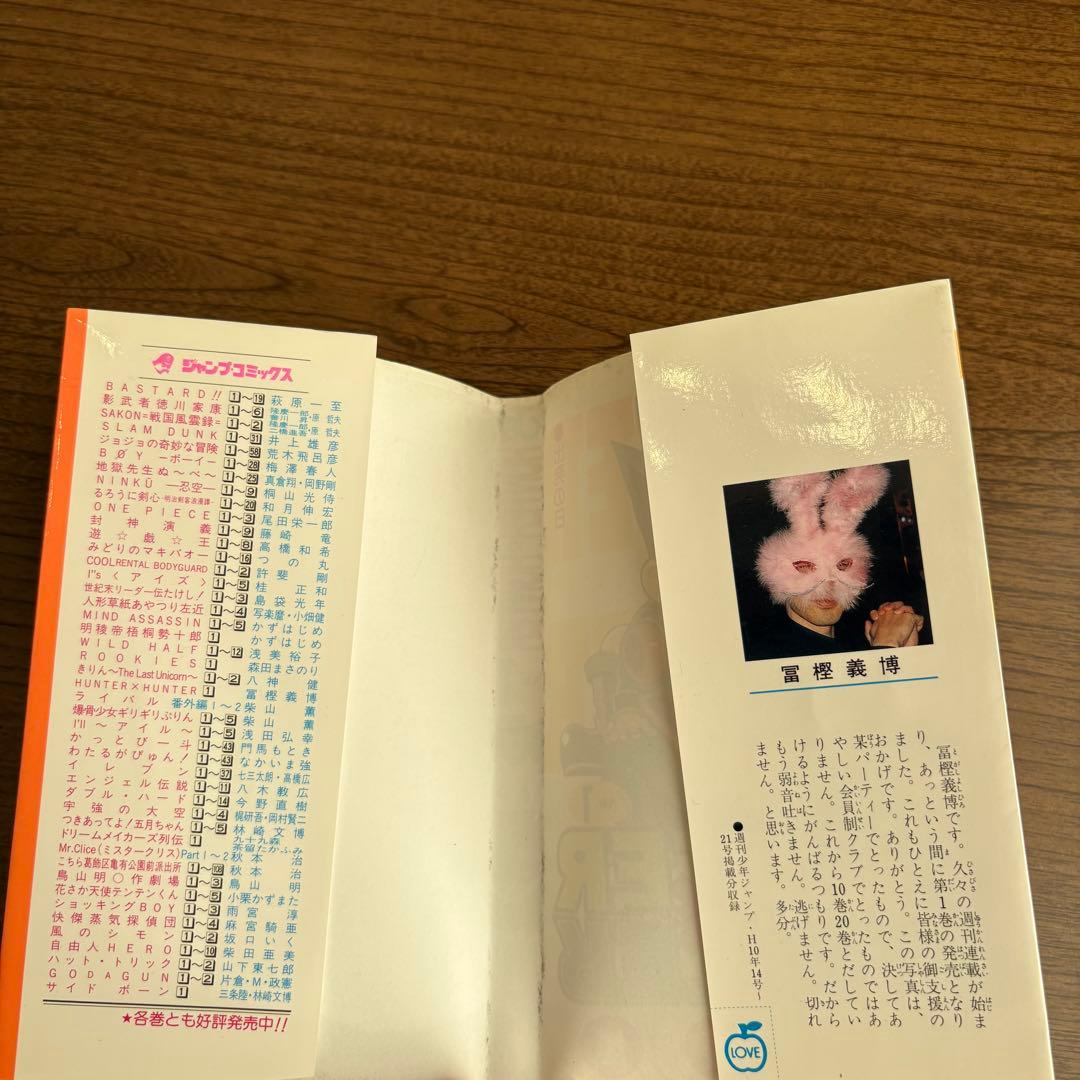 ジャンプ・コミックス
BASTARD!! 1〜19 萩原一至
影武者徳川家康 1〜6 隆慶一郎・原哲夫 會川昇
SAKON=戦国風雲録= 1〜2 隆慶一郎・原哲夫 二橋進吾
SLAM DUNK 1〜31 井上雄彦
ジョジョの奇妙な冒険 1〜58 荒木飛呂彦
BØY ーボーイー 1〜28 梅澤春人
地獄先生ぬ〜べ〜 1〜25 真倉翔・岡野剛
NINKŪ ―忍空― 1〜9 桐山光侍
るろうに剣心-明治剣客浪漫譚- 1〜20 和月伸宏
ONE PIECE 1〜3 尾田栄一郎
封神演義 1〜9 藤崎竜
遊☆戯☆王 1〜8 高橋和希
みどりのマキバオー 1〜16 つの丸
COOL RENTAL BODYGUARD 1〜2 許斐剛
I"s〈アイズ〉 1〜5 桂正和
世紀末リーダー伝たけし! 1〜3 島袋光年
人形草紙あやつり左近 1〜4 写楽麿・小畑健
MIND ASSASSIN 1〜5 かずはじめ
明稜帝梧桐勢十郎 1 かずはじめ
WILD HALF 1〜12 浅美裕子
ROOKIES 1 森田まさのり
きりん〜The Last Unicorn〜 1〜2 八神健
HUNTER×HUNTER 1 冨樫義博
ライバル 番外編1〜2 柴山薫
爆骨少女ギリギリぷりん 1〜5 柴山薫
I'll 〜アイル〜 1〜5 浅田弘幸
かっとび一斗 1〜43 門馬もとき
わたるがぴゅん! 1〜43 なかいま強
イレブン 1〜37 七三太朗・高橋広
エンジェル伝説 1〜11 八木教広
ダブル・ハード 1〜14 今野直樹
宇強の大空 1〜4 梶研吾・岡村賢二
つきあってよ!五月ちゃん 1〜5 林崎文博
ドリームメイカーズ列伝 1 九十九森 茶留たかふみ
Mr.Clice(ミスタークリス) Part1〜2 秋本治
こちら葛飾区亀有公園前派出所 1〜108 秋本治
鳥山明○作劇場 1〜3 鳥山明
花さか天使テンテンくん 1〜5 小栗かずまた
ショッキングBOY 1〜3 雨宮淳
快傑蒸気探偵団 1〜4 麻宮騎亜
風のシモン 1〜2 坂口いく
自由人HERO 1〜10 柴田亜美
ハット・トリック 1〜2 山下東七郎
GODAGUN 1〜2 片倉・M・政憲
サイドボーン 1 三条陸・林崎文博
★各巻とも好評発売中!!
冨樫義博
冨樫義博です。久々の週刊連載が始ま
り、あっという間に第1巻の発売となり
ました。これもひとえに皆様の御支援の
おかげです。ありがとう。この写真は、
某パーティーでとったもので、決してあ
やしい会員制クラブでとったものではあ
りません。これから10巻20巻とだしてい
けるようにがんばるつもりです。だから
もう弱音吐きません。逃げません。切れ
ません。と思います。多分。
●週刊少年ジャンプ・H10年14号〜
21号掲載分収録
LOVE